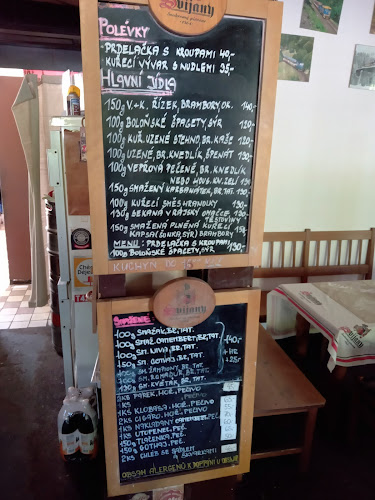 Svijany
POLÉVKY
-PRDELAČKA S KROUPAMI 40,-
KUŘECÍ VÝVAR S NUDLEMI 35,-
HLAVNÍ JÍDLA
150g V.-K. ŘÍZEK, BRAMBORY, OK. 140,-
100g BOLOŇSKÉ ŠPAGETY, SÝR 120,-
100g KUŘ. UZENÉ STEHNO, BR. KAŠE 120,-
100g UZENÉ, BR. KNEDLÍK, ŠPENÁT 130,-
100g VEPŘOVÁ PEČENĚ, BR. KNEDLÍK
NEBO HOUS. KN. ZELÍ 130,-
150g SMAŽENÝ KARBANÁTEK, BR, TAT.
100g KUŘECÍ SMĚS HRANOLKY
130g SEKANÁ V RAJSKÝ OMÁČCE
TĚSTOVINY
150g SMAŽENÁ PLNĚNÁ KUŘECÍ
KAPSA (ŠUNKA, SÝR) BRAMBORY
MENU: PRDELAČKA S KROUPAMI
100g BOLOŇSKÉ ŠPAGETY, SÝR 130,-
KUCHYŇ DO
Svijany
SMAŽENÉ
100g SMAŽÁK, BR, TAT.
100g SMAŽ. CAMEMBERT, BR, TAT. 140,-
100g SM. NIVA, BR, TAT.
150g SM. GOTHAJ, BR, TAT.
SM. ŽAMPIONY, BR, TAT.
100g SM. ROMADÚR, BR, TAT.
130g SM. KVĚTÁK, BR, TAT.
2KS PÁREK, HOŘ., PEČIVO
1KS KLOBÁSA, HOŘ., PEČIVO
2KS CIGÁRO, HOŘ., PEČIVO
1KS NAKLÁDANÝ CAMEMBERT, PEČ.
1KS UTOPENEC, PEČ.
150g TLAČENKA, PEČ.
150g GOTHAJ, PEČ.
2KS CHLÉB SE SÁDLEM
A ŠKVARKAMA
OBSAH ALERGENŮ K DOPTÁNÍ U OBSLUHY